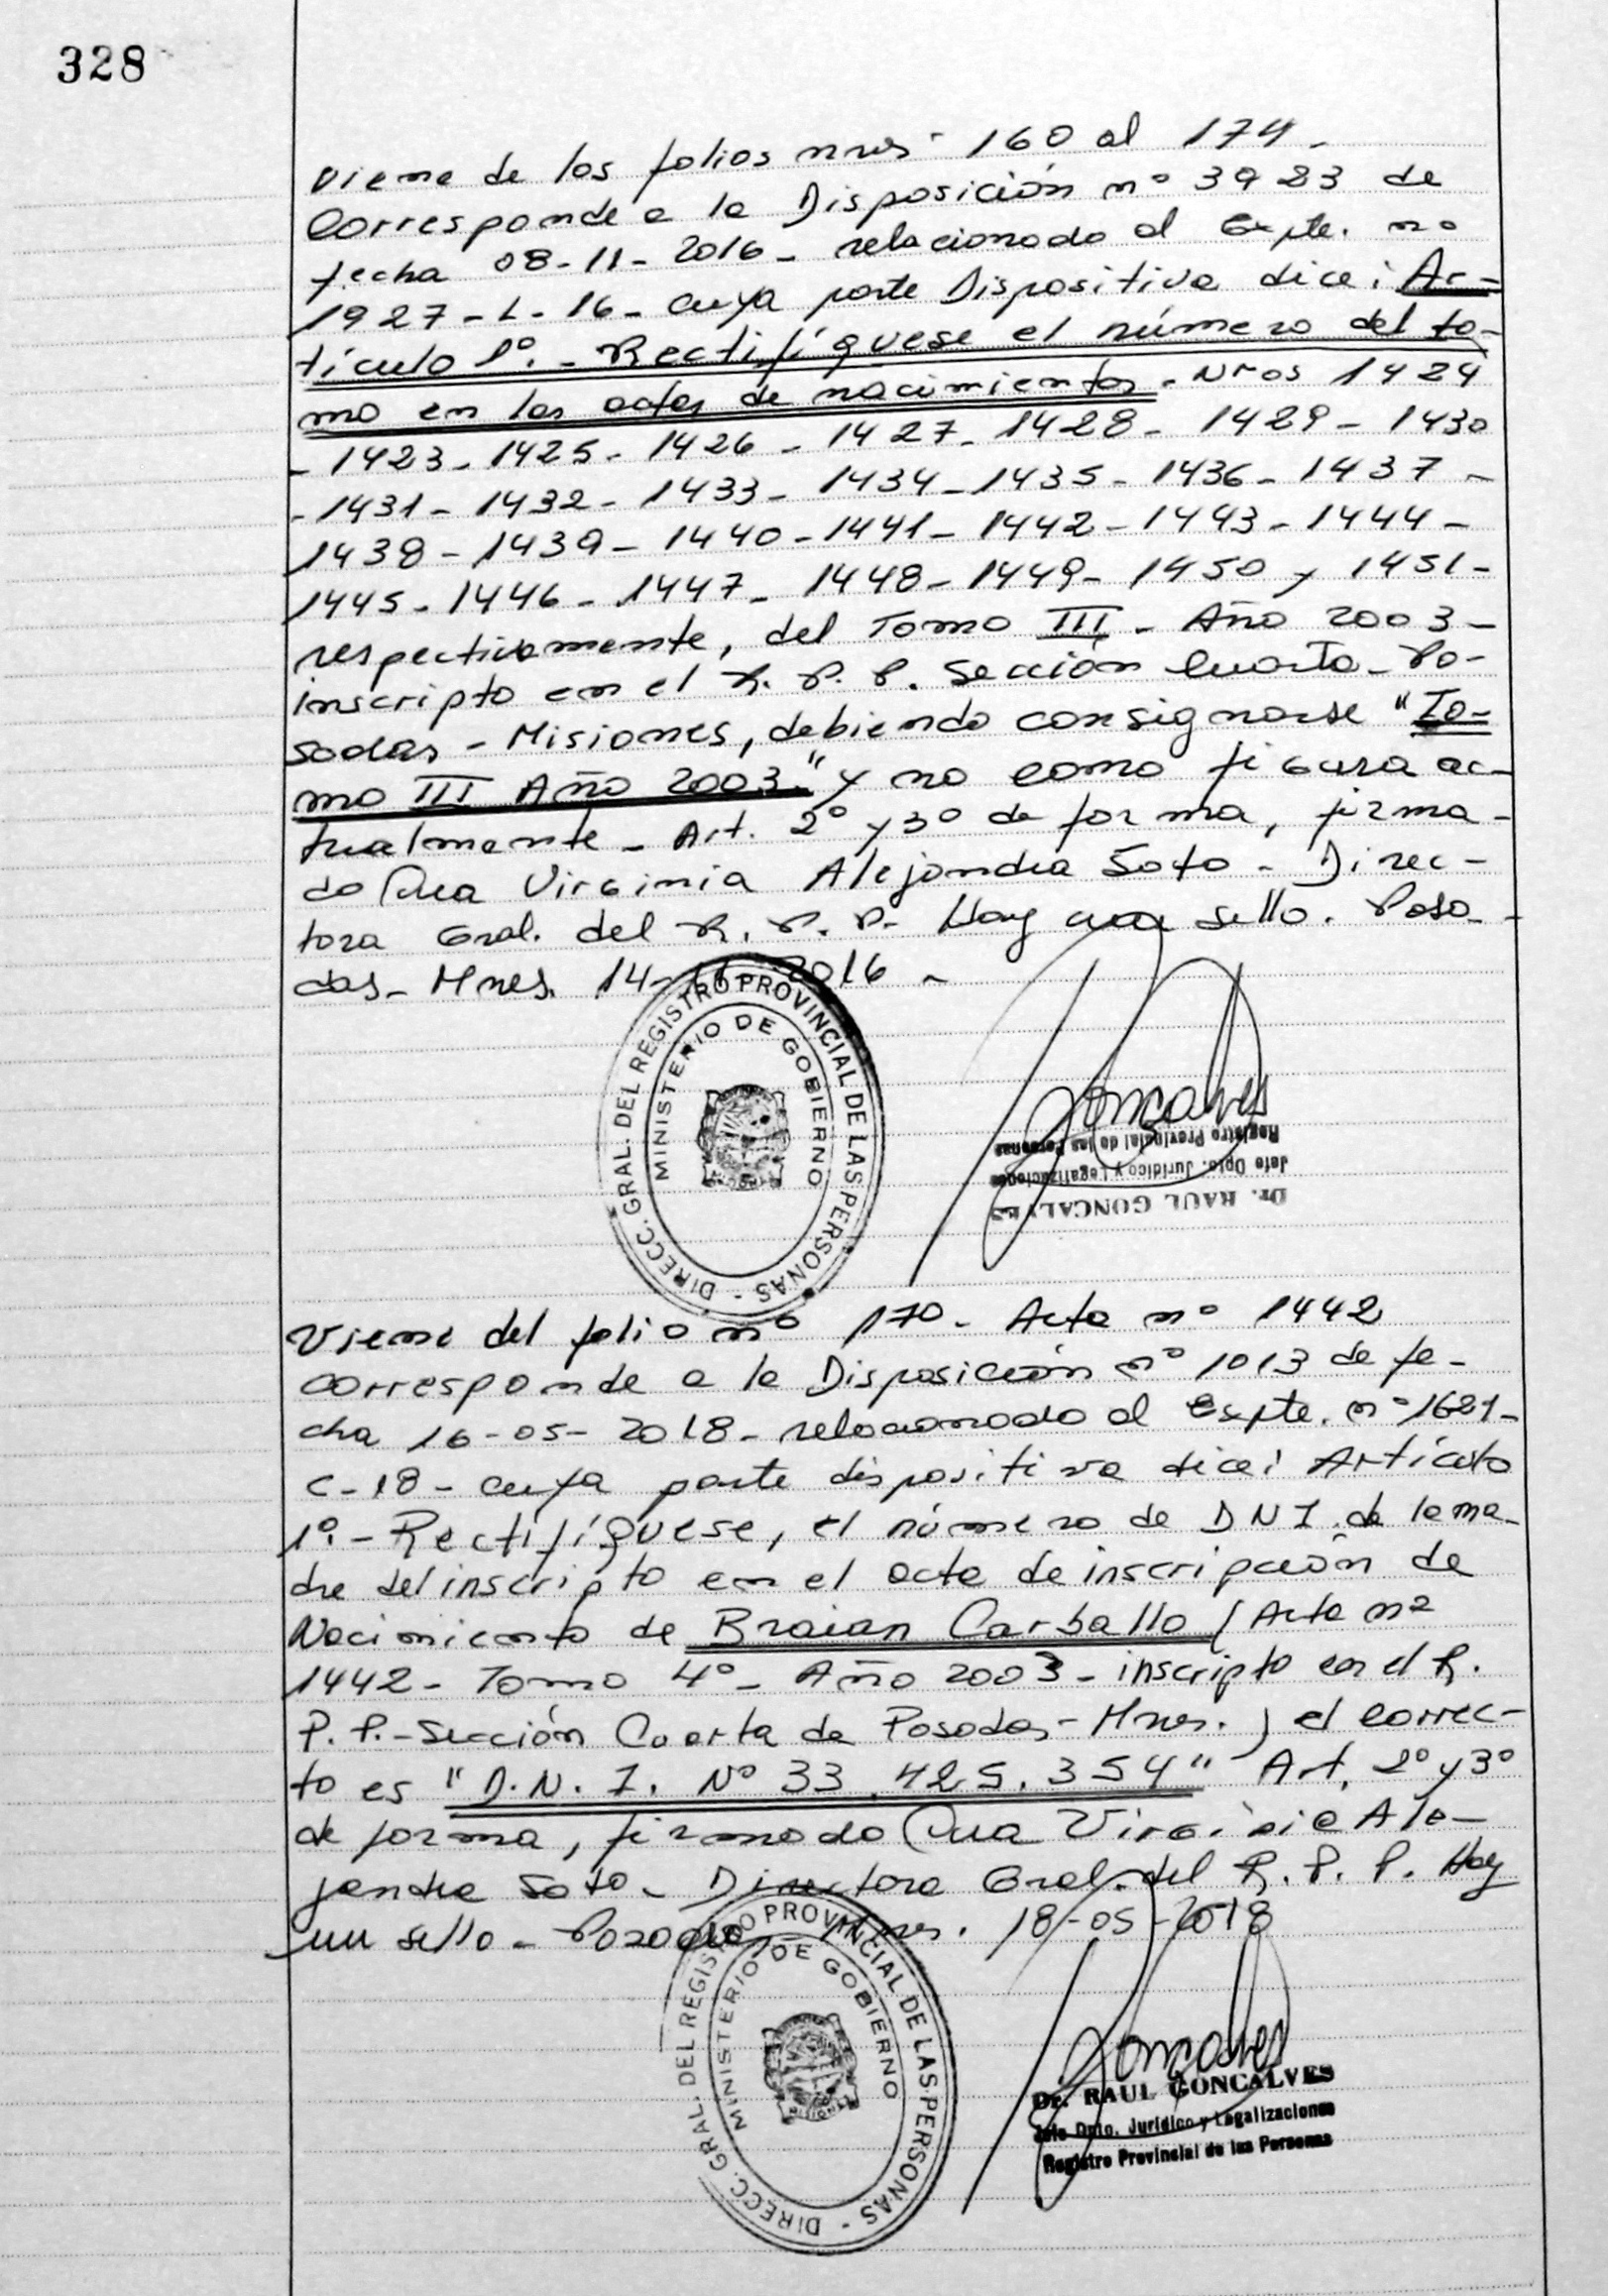 328
Viene de los folios nros. 160 al 174 -
Corresponde a la Disposición nº 3923 de
fecha 08-11-2016 - relacionado al Expte. nº
1927-L-16 - cuya parte Dispositiva dice: Ar-
tículo 1º. - Rectifíquese el número del to-
mo en las actas de nacimientos - Nros 1424
- 1423 - 1425 - 1426 - 1427 - 1428 - 1429 - 1430
- 1431 - 1432 - 1433 - 1434 - 1435 - 1436 - 1437 -
1438 - 1439 - 1440 - 1441 - 1442 - 1443 - 1444 -
1445 - 1446 - 1447 - 1448 - 1449 - 1450 y 1451 -
respectivamente, del Tomo III - Año 2003 -
inscripto en el R. P. P. Sección Cuarta - Po-
sadas - Misiones, debiendo consignarse "To-
mo III Año 2003." y no como figura ac-
tualmente - Art. 2º y 3º de forma, firma-
do Dra Virginia Alejandra Soto - Direc-
tora Gral. del R. P. P. Hay un sello. Posa-
das - Mnes. 14-11-2016 -
DIRECC. GRAL. DEL REGISTRO PROVINCIAL DE LAS PERSONAS -
MINISTERIO DE GOBIERNO
Goncalves
Dr. RAUL GONCALVES
Jefe Dpto. Jurídico y Legalizaciones
Registro Provincial de las Personas
Viene del folio nº 170 - Acta nº 1442
Corresponde a la Disposición nº 1013 de fe-
cha 16-05-2018 - relacionado al Expte. nº 1621-
C-18 - cuya parte dispositiva dice: Artículo
1º. - Rectifíquese, el número de DNI. de la ma-
dre del inscripto en el acta de inscripción de
Nacimiento de Braian Carballo (Acta nº
1442 - Tomo 4º - Año 2003 - inscripto en el R.
P. P. - Sección Cuarta de Posadas - Mnes.) el correc-
to es "D.N.I. Nº 33.425.354" Art. 2º y 3º
de forma, firmado Dra Virginia Ale-
jandra Soto - Directora Gral. del R. P. P. Hay
un sello - Posadas - Mnes. 18-05-2018
DIRECC. GRAL. DEL REGISTRO PROVINCIAL DE LAS PERSONAS -
MINISTERIO DE GOBIERNO
Goncalves
Dr. RAUL GONCALVES
Jefe Dpto. Jurídico y Legalizaciones
Registro Provincial de las Personas